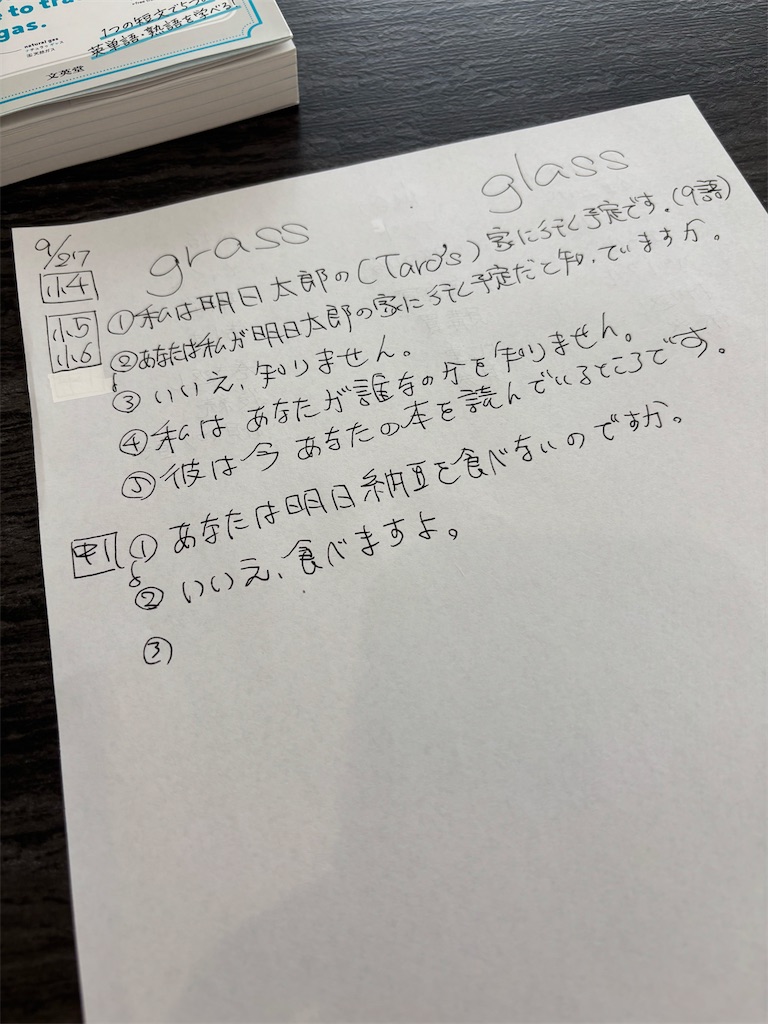 to tra
gas.
natural gas
1つの短文で5つの
英単語・熟語を学べる!
文英堂
grass
glass
9/27
小4
①私は明日太郎の(Taro's)家に行く予定です。(9語)
小5
小6
②あなたは私が明日太郎の家に行く予定だと知っていますか。
③いいえ、知りません。
④私はあなたが誰なの分を知りません。
⑤彼は今あなたの本を読んでいるところです。
中1
①あなたは明日納豆を食べないのですか。
②いいえ、食べますよ。
③